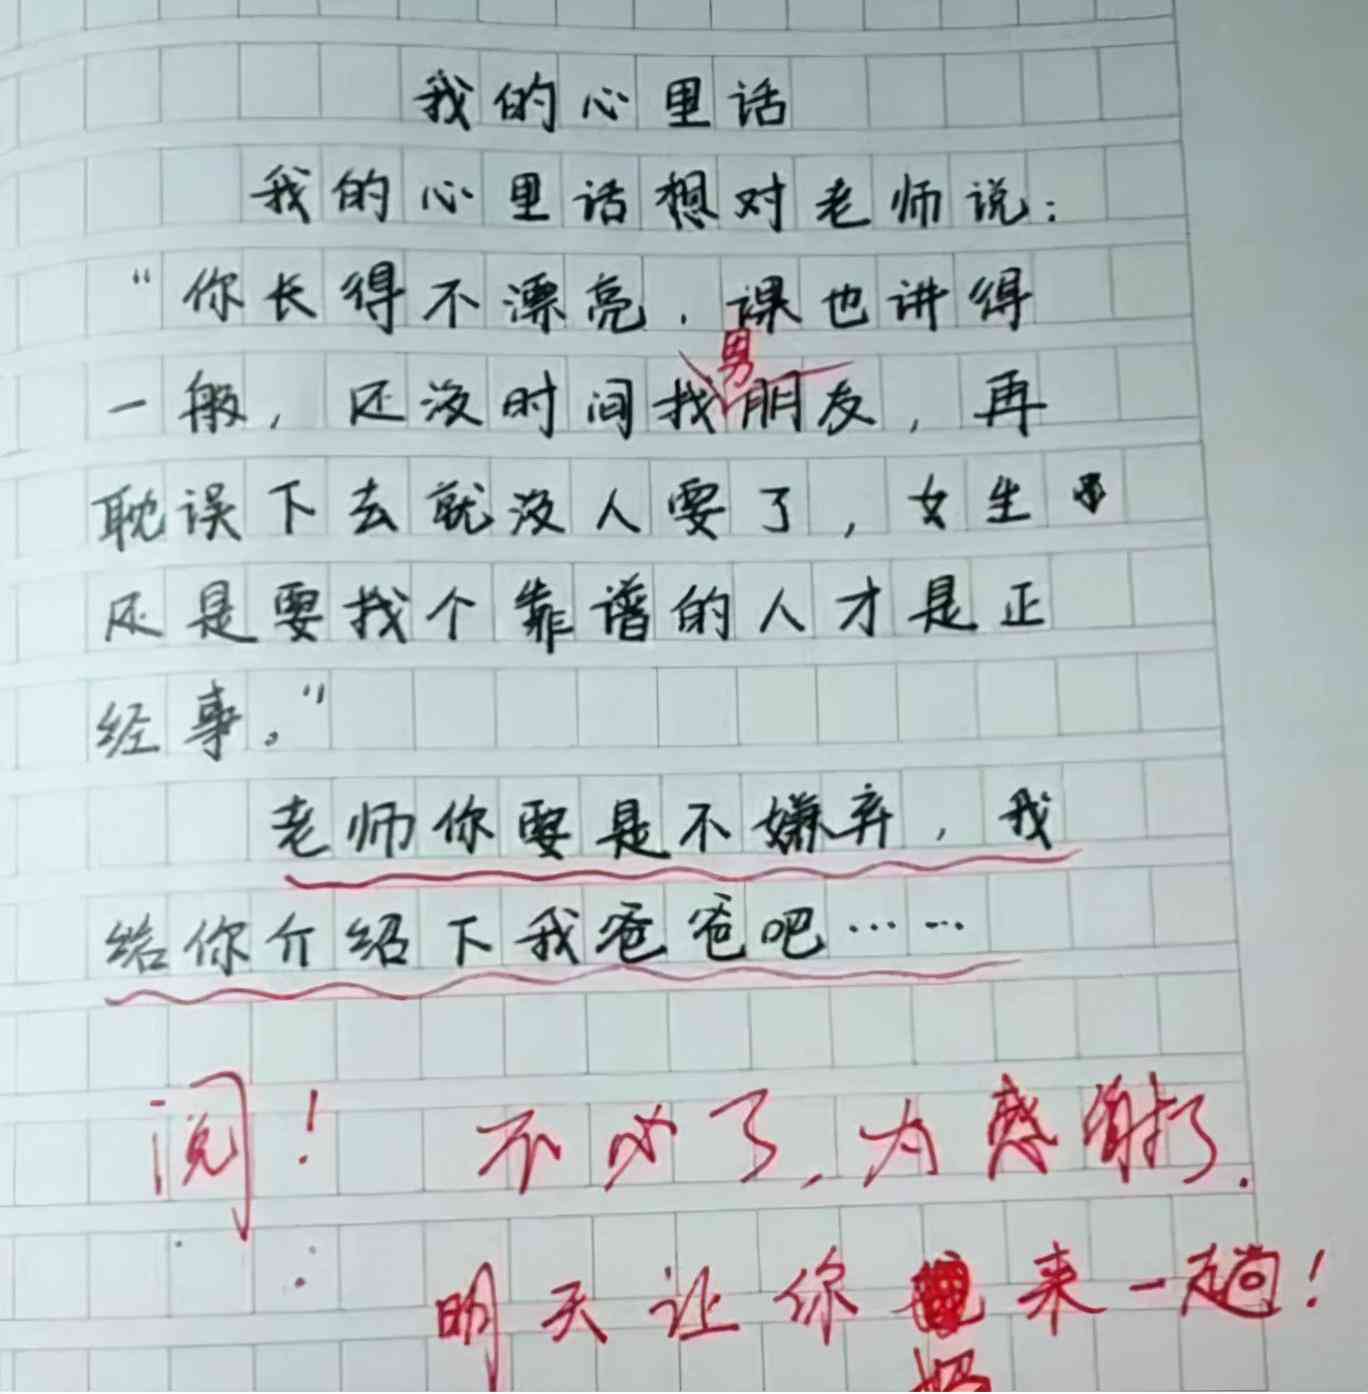 我的心里话
我的心里话想对老师说:
“你长得不漂亮.课也讲得
男
一般,还没时间找朋友,再
耽误下去就没人要了,女生
还是要找个靠谱的人才是正
经事。”
老师你要是不嫌弃,我
给你介绍下我爸爸吧……
阅! 不必了,太感谢了.
明天让你 来一趟!
妈